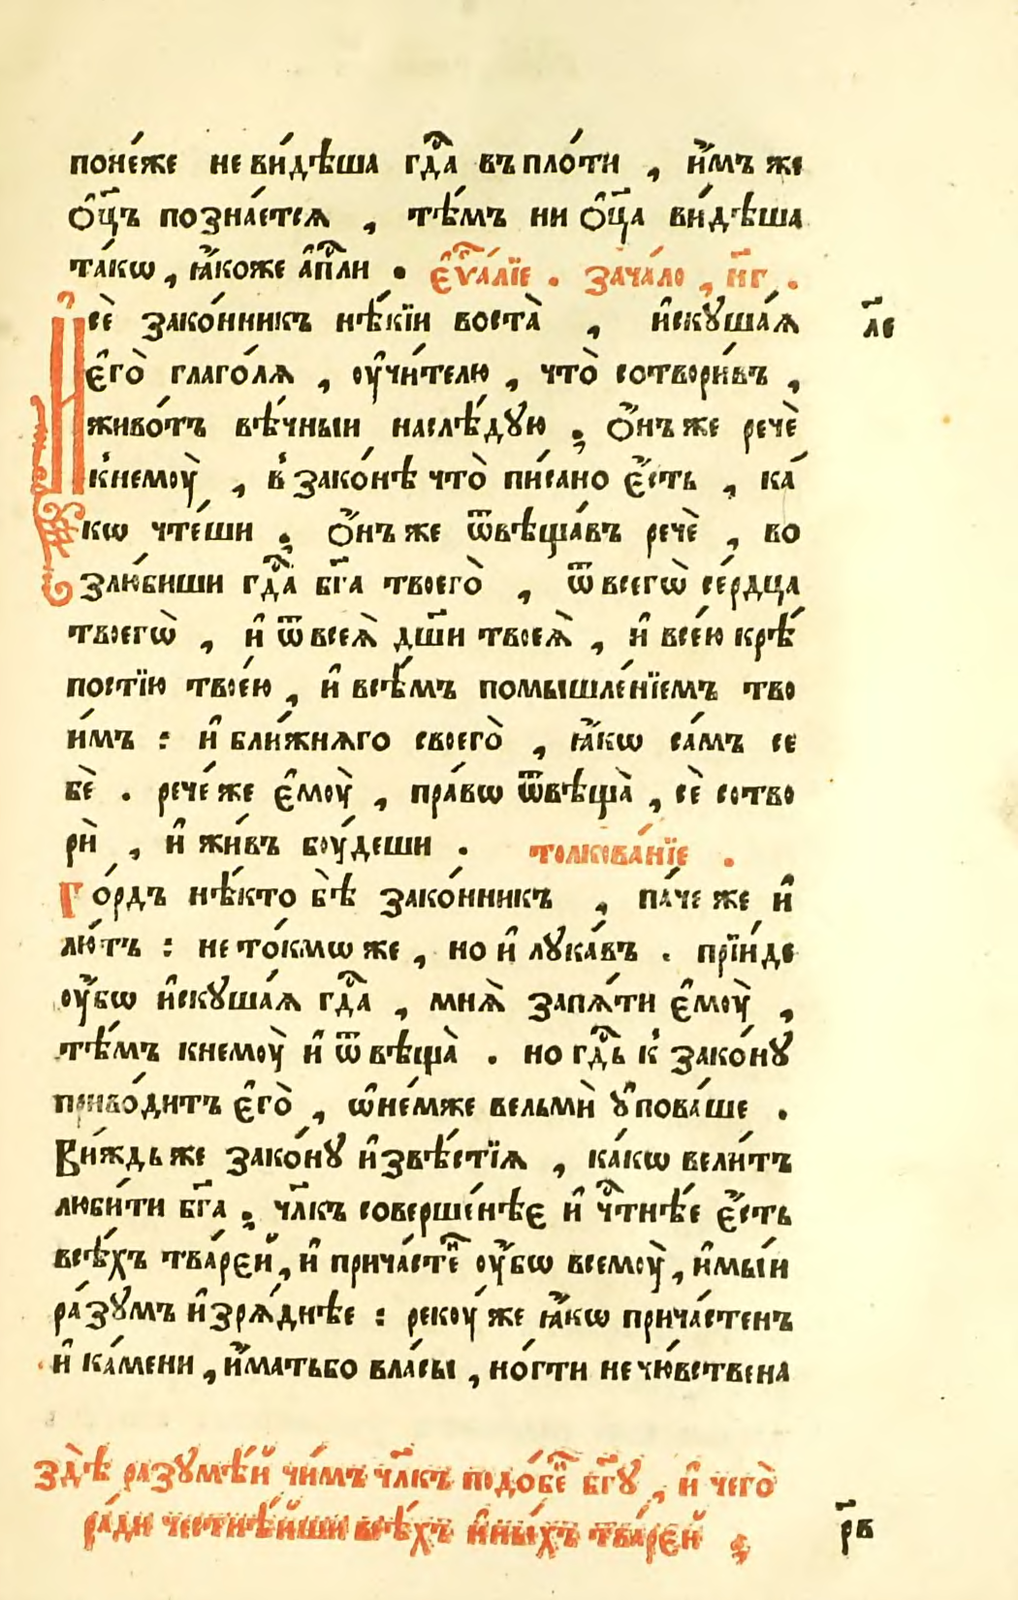 поне́же не ви́дѣша гдⷭ҇а въ пло́ти , и҆́мъ же
ѻ҆ц҃ъ позна́ется , тѣ́мъ ни ѻ҆ц҃а ви́дѣша
та́кѡ , ꙗ҆́коже а҆пⷭ҇ли . є҆ѵⷢ҇а́лїе . зача́ло , н҃г .
И҆ сѐ зако́нникъ нѣ́кїи воста̀ , и҆скꙋша́ѧ
л҃е
є҆го̀ глаго́лѧ , оу҆чи́телю , что̀ сотвори́въ ,
живо́тъ вѣ́чныи наслѣ́дꙋю ; ѻ҆́нъ же речѐ
кнемоу̀ , в҆ зако́нѣ что̀ пи́сано є҆́сть , ка́
кѡ чте́ши ; ѻ҆́нъ же ѿвѣща́въ речѐ , во
злю́биши гдⷭ҇а бг҃а твоего̀ , ѿ всегѡ̀ се́рдца
твоегѡ̀ , и҆ ѿ всеѧ̀ дш҃и твоеѧ̀ , и҆ все́ю крѣ́
постїю твое́ю , и҆ всѣ́мъ помышле́нїемъ тво
и́мъ : и҆ бли́жнѧго своего̀ , ꙗ҆́кѡ са́мъ се
бѐ . рече́ же є҆моу̀ , пра́вѡ ѿвѣща̀ , сѐ сотво
рѝ , и҆ жи́въ боу́деши . толкова́нїе .
Го́рдъ нѣ́кто бѣ̀ зако́нникъ , па́че же и҆
лю́тъ : не то́кмѡ же , но и҆ лꙋка́въ . прїи́де
оу҆́бѡ и҆скꙋша́ѧ гдⷭ҇а , мнѧ̀ запѧ́ти є҆моу̀ ,
тѣ́мъ кнемоу̀ и҆ ѿвѣща̀ . но гдⷭ҇ь к҆ зако́нꙋ
приво́дитъ є҆го̀ , ѡ҆не́мже вельмѝ ᲂу҆пова́ше .
Ви́ждь же зако́нꙋ и҆звѣ́стїѧ , ка́кѡ вели́тъ
люби́ти бг҃а ; чл҃къ соверше́нѣе и҆ чⷭ҇тнѣ́е є҆́сть
всѣ́хъ тва́рей , и҆ прича́стенъ оу҆́бѡ всемоу̀ , и҆мы́и
ра́зꙋмъ и҆зрѧ́днѣе : рекоу́ же ꙗ҆́кѡ прича́стенъ
и҆ ка́мени , и҆́матьбо власы̀ , но́гти нечю́вствена
здѣ̀ разꙋмѣ́й чи́мъ чл҃къ подо́бенъ бг҃ꙋ , и҆ чего̀
ра́ди честнѣ́йши всѣ́хъ и҆ны́хъ тва́рей ;
р҃в